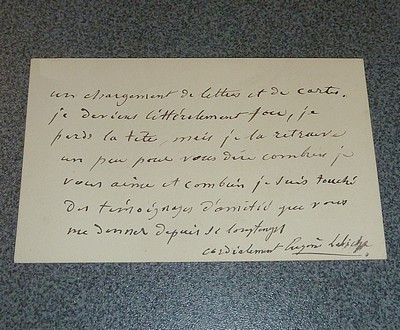 un chargement de lettres et de cartes.
je deviens littéralement fou, je
perds la tête, mais je la retrouve
un peu pour vous dire combien je
vous aime et combien je suis touché
des témoignages d'amitié que vous
me donnez depuis si longtemps
cordialement Eugène Labiche